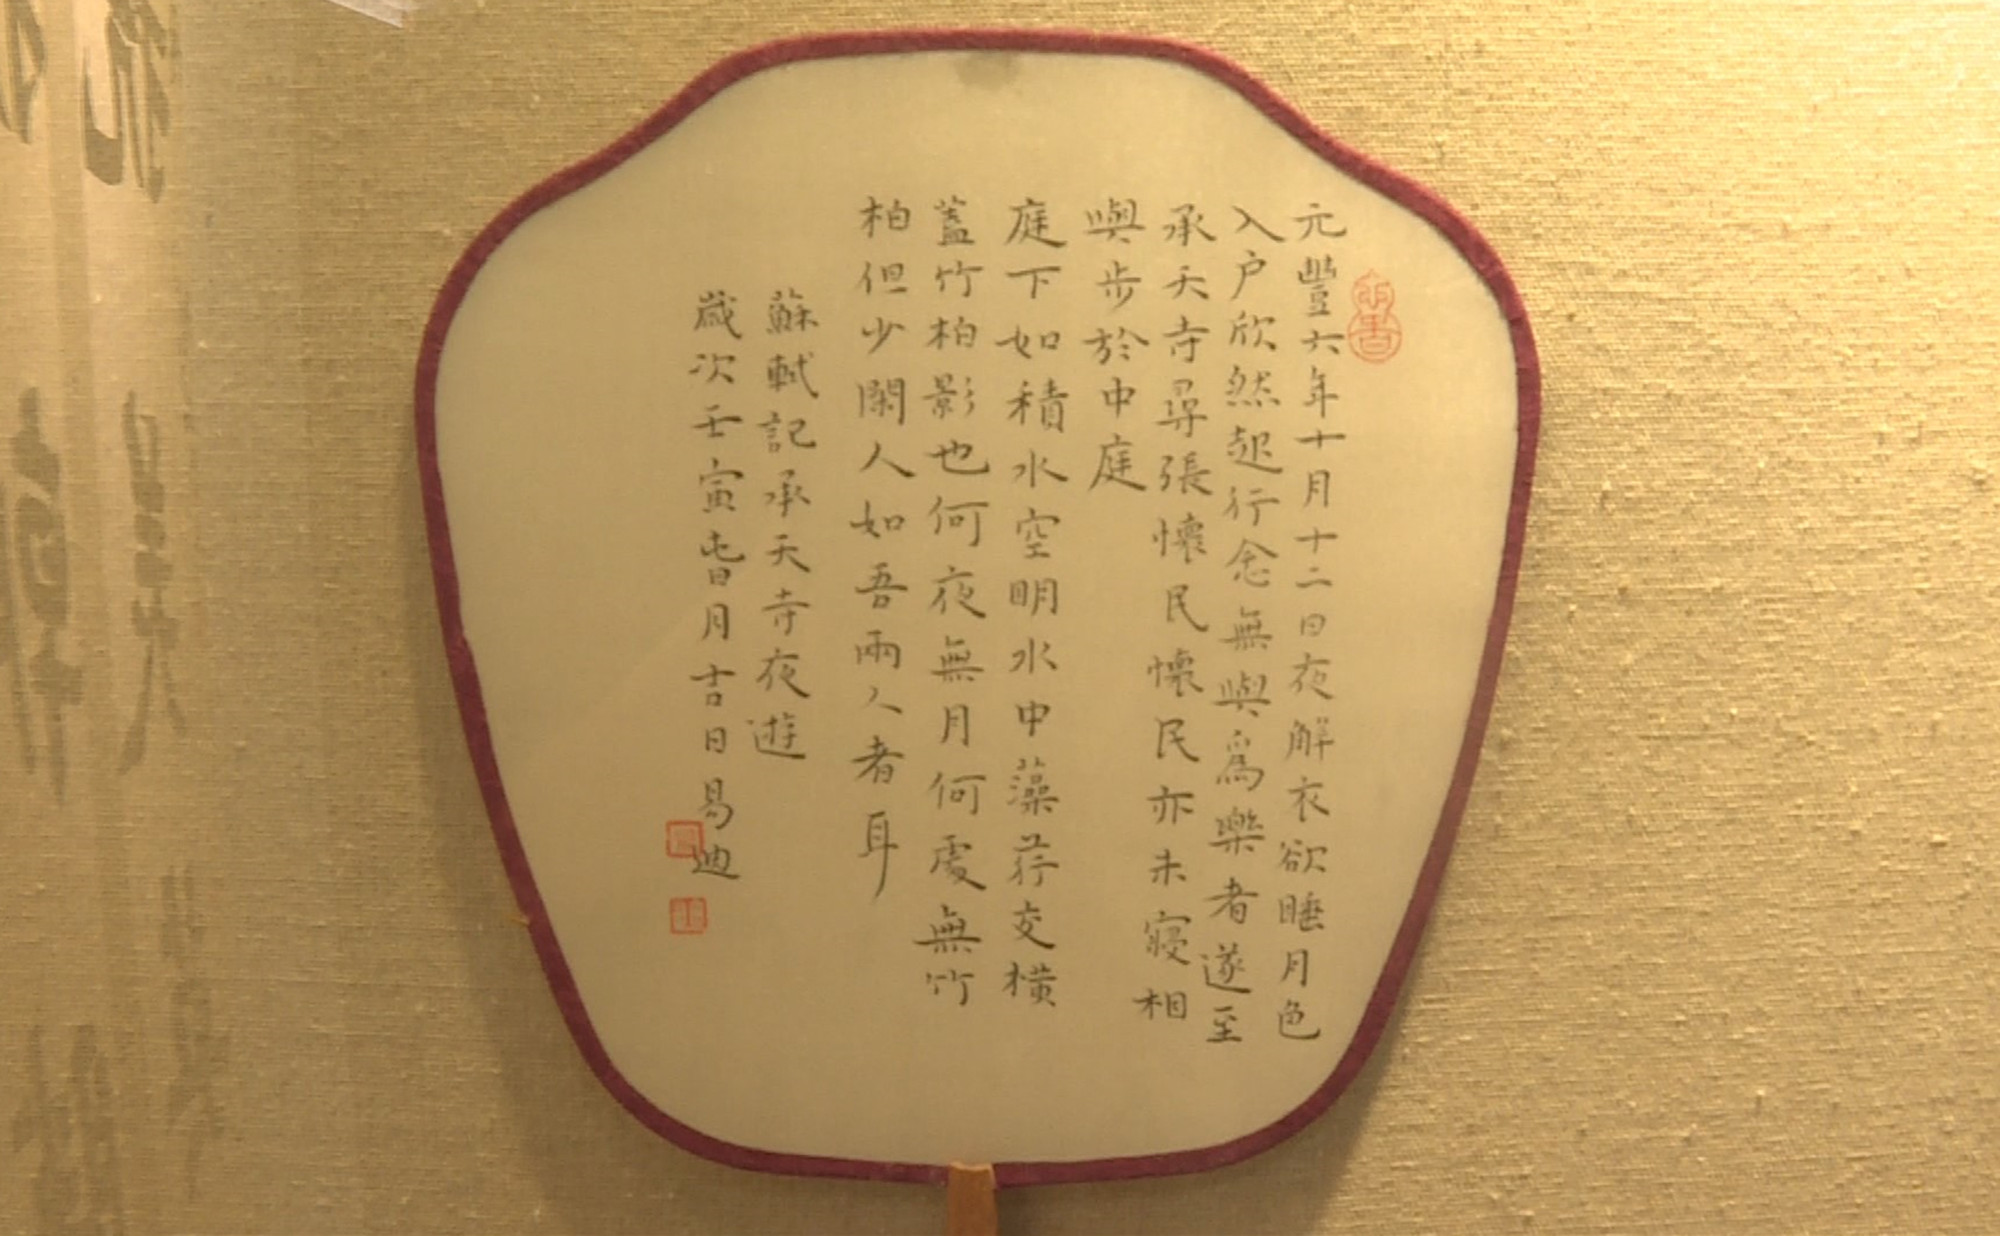 元豐六年十月十二日夜解衣欲睡月色
入户欣然起行念無與爲樂者遂至
承天寺尋張懷民懷民亦未寢相
與步於中庭
庭下如積水空明水中藻荇交橫
蓋竹柏影也何夜無月何處無竹
柏但少閑人如吾兩人者耳
蘇軾記承天寺夜遊
歲次壬寅旾月吉日易迪